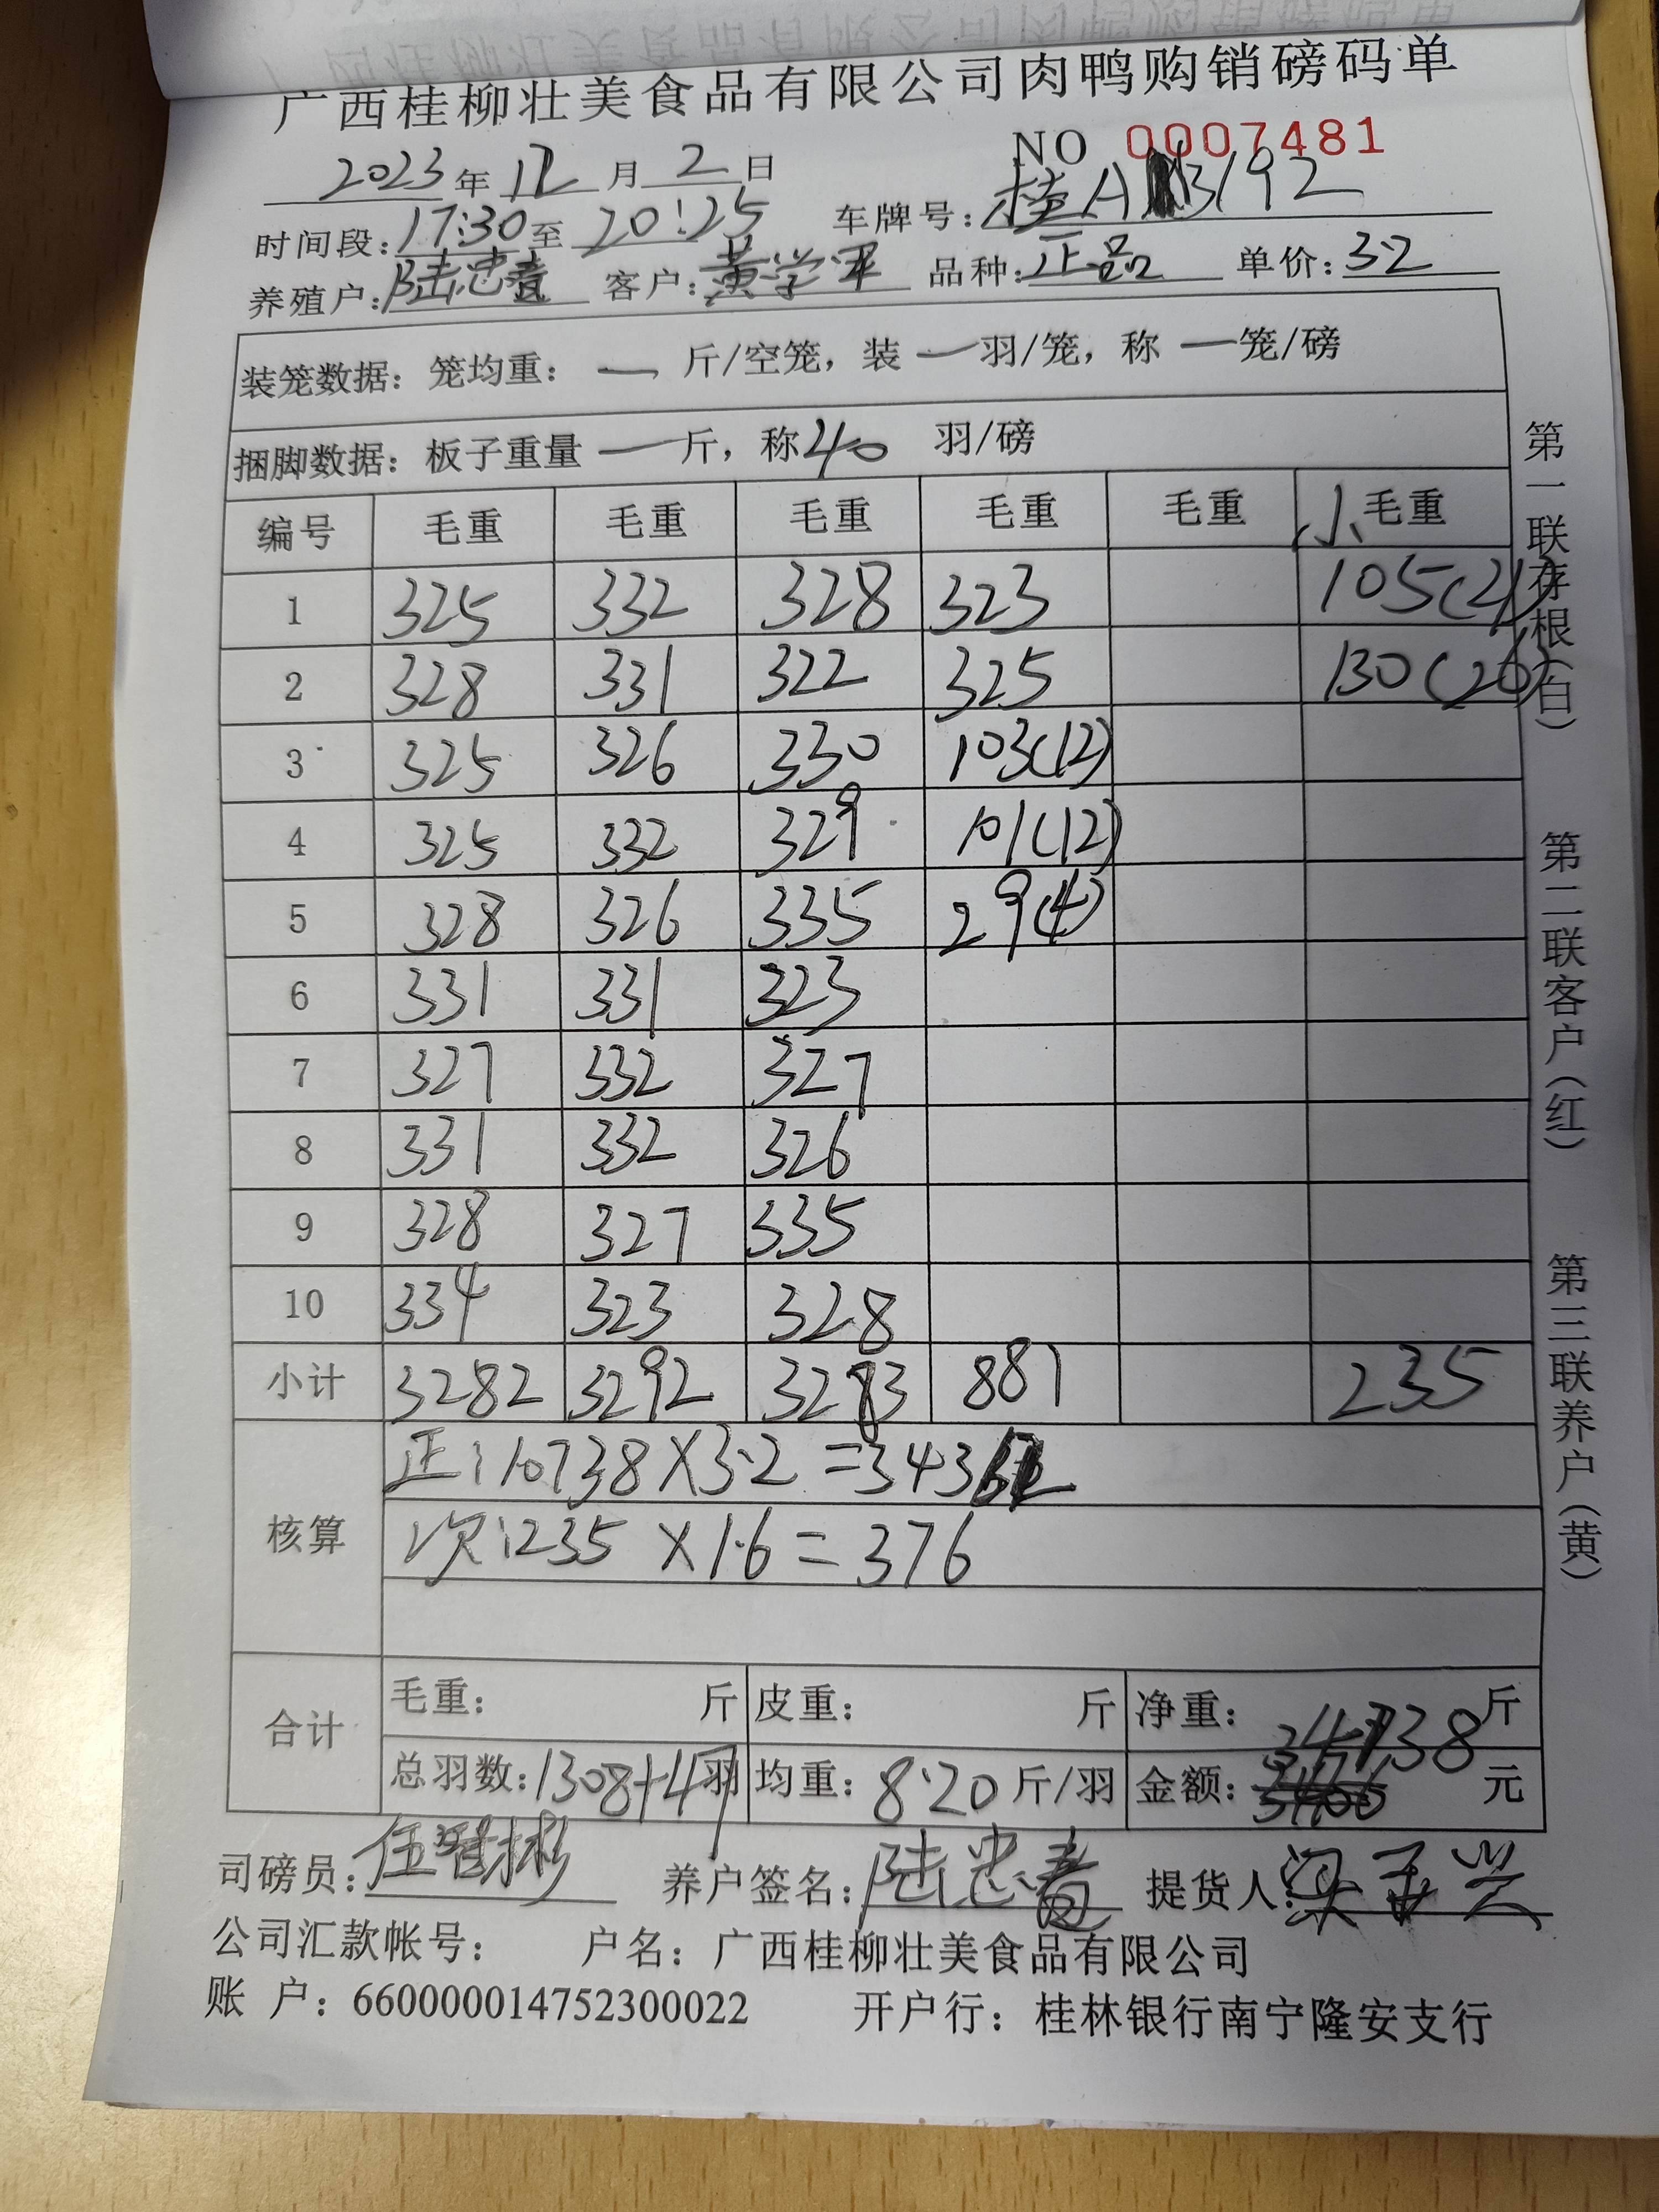 广西桂柳壮美食品有限公司肉鸭购销磅码单
NO 0007481
2023年12月2日
时间段：17:30至20:25 车牌号：桂A3192
养殖户：陆忠 客户：黄学军 品种：正品 单价：3.2
装笼数据：笼均重：一斤/空笼，装一羽/笼，称一笼/磅
捆脚数据：板子重量一斤，称40羽/磅
编号 毛重 毛重 毛重 毛重 毛重 小毛重
1 325 332 328 323 105(21)
2 328 331 322 325 130(20)
3 325 326 330 103(12)
4 325 332 329 101(12)
5 328 326 335 29(4)
6 331 331 323
7 327 332 327
8 331 332 326
9 328 327 335
10 334 323 328
小计 3282 3292 3283 881 235
核算 正：10738×3.2=34362
次：235×1.6=376
合计 毛重： 斤 皮重： 斤 净重： 斤
总羽数：1308+41羽 均重：8.20斤/羽 金额：34738元
司磅员：伍智彬 养户签名：陆忠 提货人：梁玉兴
公司汇款帐号： 户名：广西桂柳壮美食品有限公司
账 户：660000014752300022 开户行：桂林银行南宁隆安支行
第一联存根（白） 第二联客户（红） 第三联养户（黄）